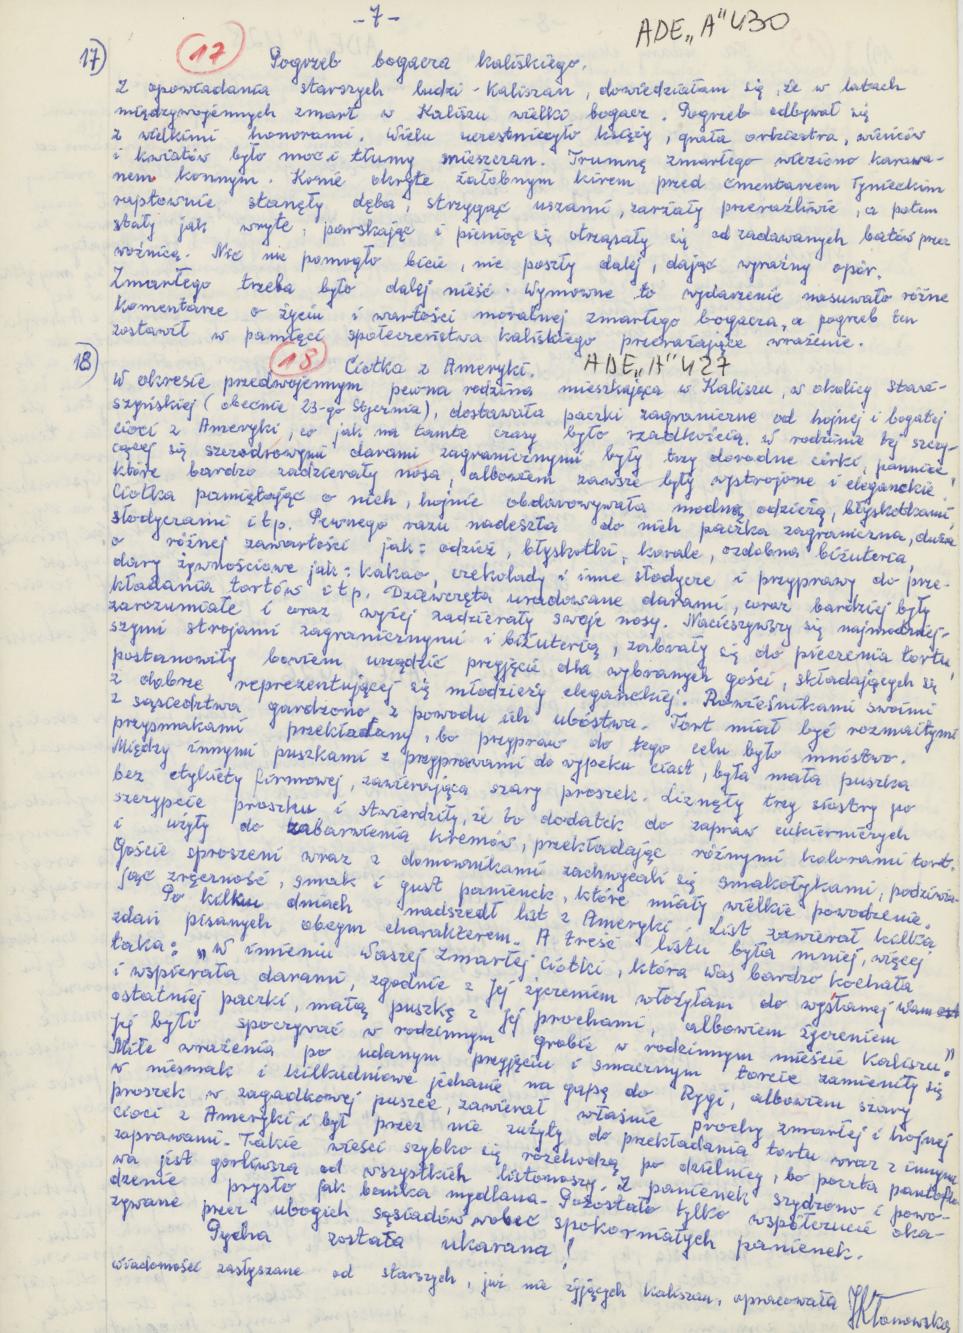 -7-
ADE„A"430
17) 17 Pogrzeb bogacza kaliskiego.
Z opowiadania starszych ludzi - kaliszan, dowiedziałam się, że w latach
międzywojennych zmarł w Kaliszu wielki bogacz. Pogrzeb odbywał się
z wielkimi honorami. Wielu uczestniczyło księży, grała orkiestra, wieńców
i kwiatów było moc i tłumy mieszczan. Trumnę zmarłego wieziono karawa-
nem konnym. Konie okryte żałobnym kirem przed cmentarzem Tynieckim
raptownie stanęły dęba, strzygąc uszami, zarżały przeraźliwie, a potem
stały jak wryte, parskając i pieniąc się otrząsały się od zadawanych batów przez
woźnicę. Nic nie pomogło bicie, nie poszły dalej, dając wyraźny opór.
Zmarłego trzeba było dalej nieść. Wymowne to wydarzenie nasuwało różne
komentarze o życiu i wartości moralnej zmarłego bogacza, a pogrzeb ten
zostawił w pamięci społeczeństwa kaliskiego przerażające wrażenie.
18) 18 Ciotka z Ameryki. ADE„A"427
W okresie przedwojennym pewna rodzina mieszkająca w Kaliszu, w okolicy Stawi-
szyńskiej (obecnie 23-go Stycznia), dostawała paczki zagraniczne od hojnej i bogatej
cioci z Ameryki, co jak na tamte czasy było rzadkością. W rodzinie tej szczy-
cącej się szczodrowymi darami zagranicznymi były trzy dorodne córki, panny,
które bardzo zadzierały nosa, albowiem zawsze były wystrojone i eleganckie.
Ciotka pamiętając o nich, hojnie obdarowywała modną odzieżą, błyskotkami,
słodyczami itp. Pewnego razu nadeszła do nich paczka zagraniczna, duża
o różnej zawartości jak: odzież, błyskotki, korale, ozdobna biżuteria,
dary żywnościowe jak: kakao, czekolady i inne słodycze i przyprawy do prze-
kładania tortów itp. Dziewczęta uradowane darami, coraz bardziej były
zarozumiałe i coraz wyżej zadzierały swoje nosy. Nacieszywszy się najmodniej-
szymi strojami zagranicznymi i biżuterią, zabrały się do pieczenia tortu,
postanowiły bowiem urządzić przyjęcie dla wybranych gości, składających się
z dobrze reprezentującej się młodzieży eleganckiej. Rówieśnikami swoimi
z sąsiedztwa gardzono z powodu ich ubóstwa. Tort miał być rozmaitymi
przysmakami przekładany, bo przypraw do tego celu było mnóstwo.
Między innymi puszkami z przyprawami do wypieku ciast, była mała puszka
bez etykiety firmowej, zawierająca szary proszek. Liznęły trzy siostry po
szczypcie proszku i stwierdziły, że to dodatek do zapraw cukierniczych
i użyły do zabarwienia kremów, przekładając różnymi kolorami tort.
Goście sproszeni wraz z domownikami zachwycali się smakołykami, podziwia-
jąc zręczność, smak i gust panienek, które miały wielkie powodzenie.
Po kilku dniach nadszedł list z Ameryki. List zawierał kilka
zdań pisanych obcym charakterem. A treść listu była mniej, więcej
taka: „W imieniu Waszej Zmarłej Ciotki, która Was bardzo kochała
i wspierała darami, zgodnie z Jej życzeniem włożyłam do wysłanej Wam
ostatniej paczki, małą puszkę z Jej prochami, albowiem życzeniem
Jej było spoczywać w rodzinnym grobie w rodzinnym mieście Kaliszu."
Miłe wrażenia po udanym przyjęciu i smacznym torcie zamieniły się
w niesmak i kilkudniowe jechanie na gapę do Rygi, albowiem szary
proszek w zagadkowej puszce, zawierał właśnie prochy zmarłej i hojnej
cioci z Ameryki i był przez nie zużyty do przekładania tortu wraz z innymi
zaprawami. Takie wieści szybko się rozchodzą po dzielnicy, bo poczta pantoflo-
wa jest gorliwsza od wszystkich listonoszy. Z panienek szydzono i powo-
dzenie prysło jak bańka mydlana. Pozostało tylko współczucie oka-
zywane przez ubogich sąsiadów wobec spokorniałych panienek.
Pycha została ukarana!
wiadomości zasłyszane od starszych, już nie żyjących kaliszan, opracowała JKłonowska